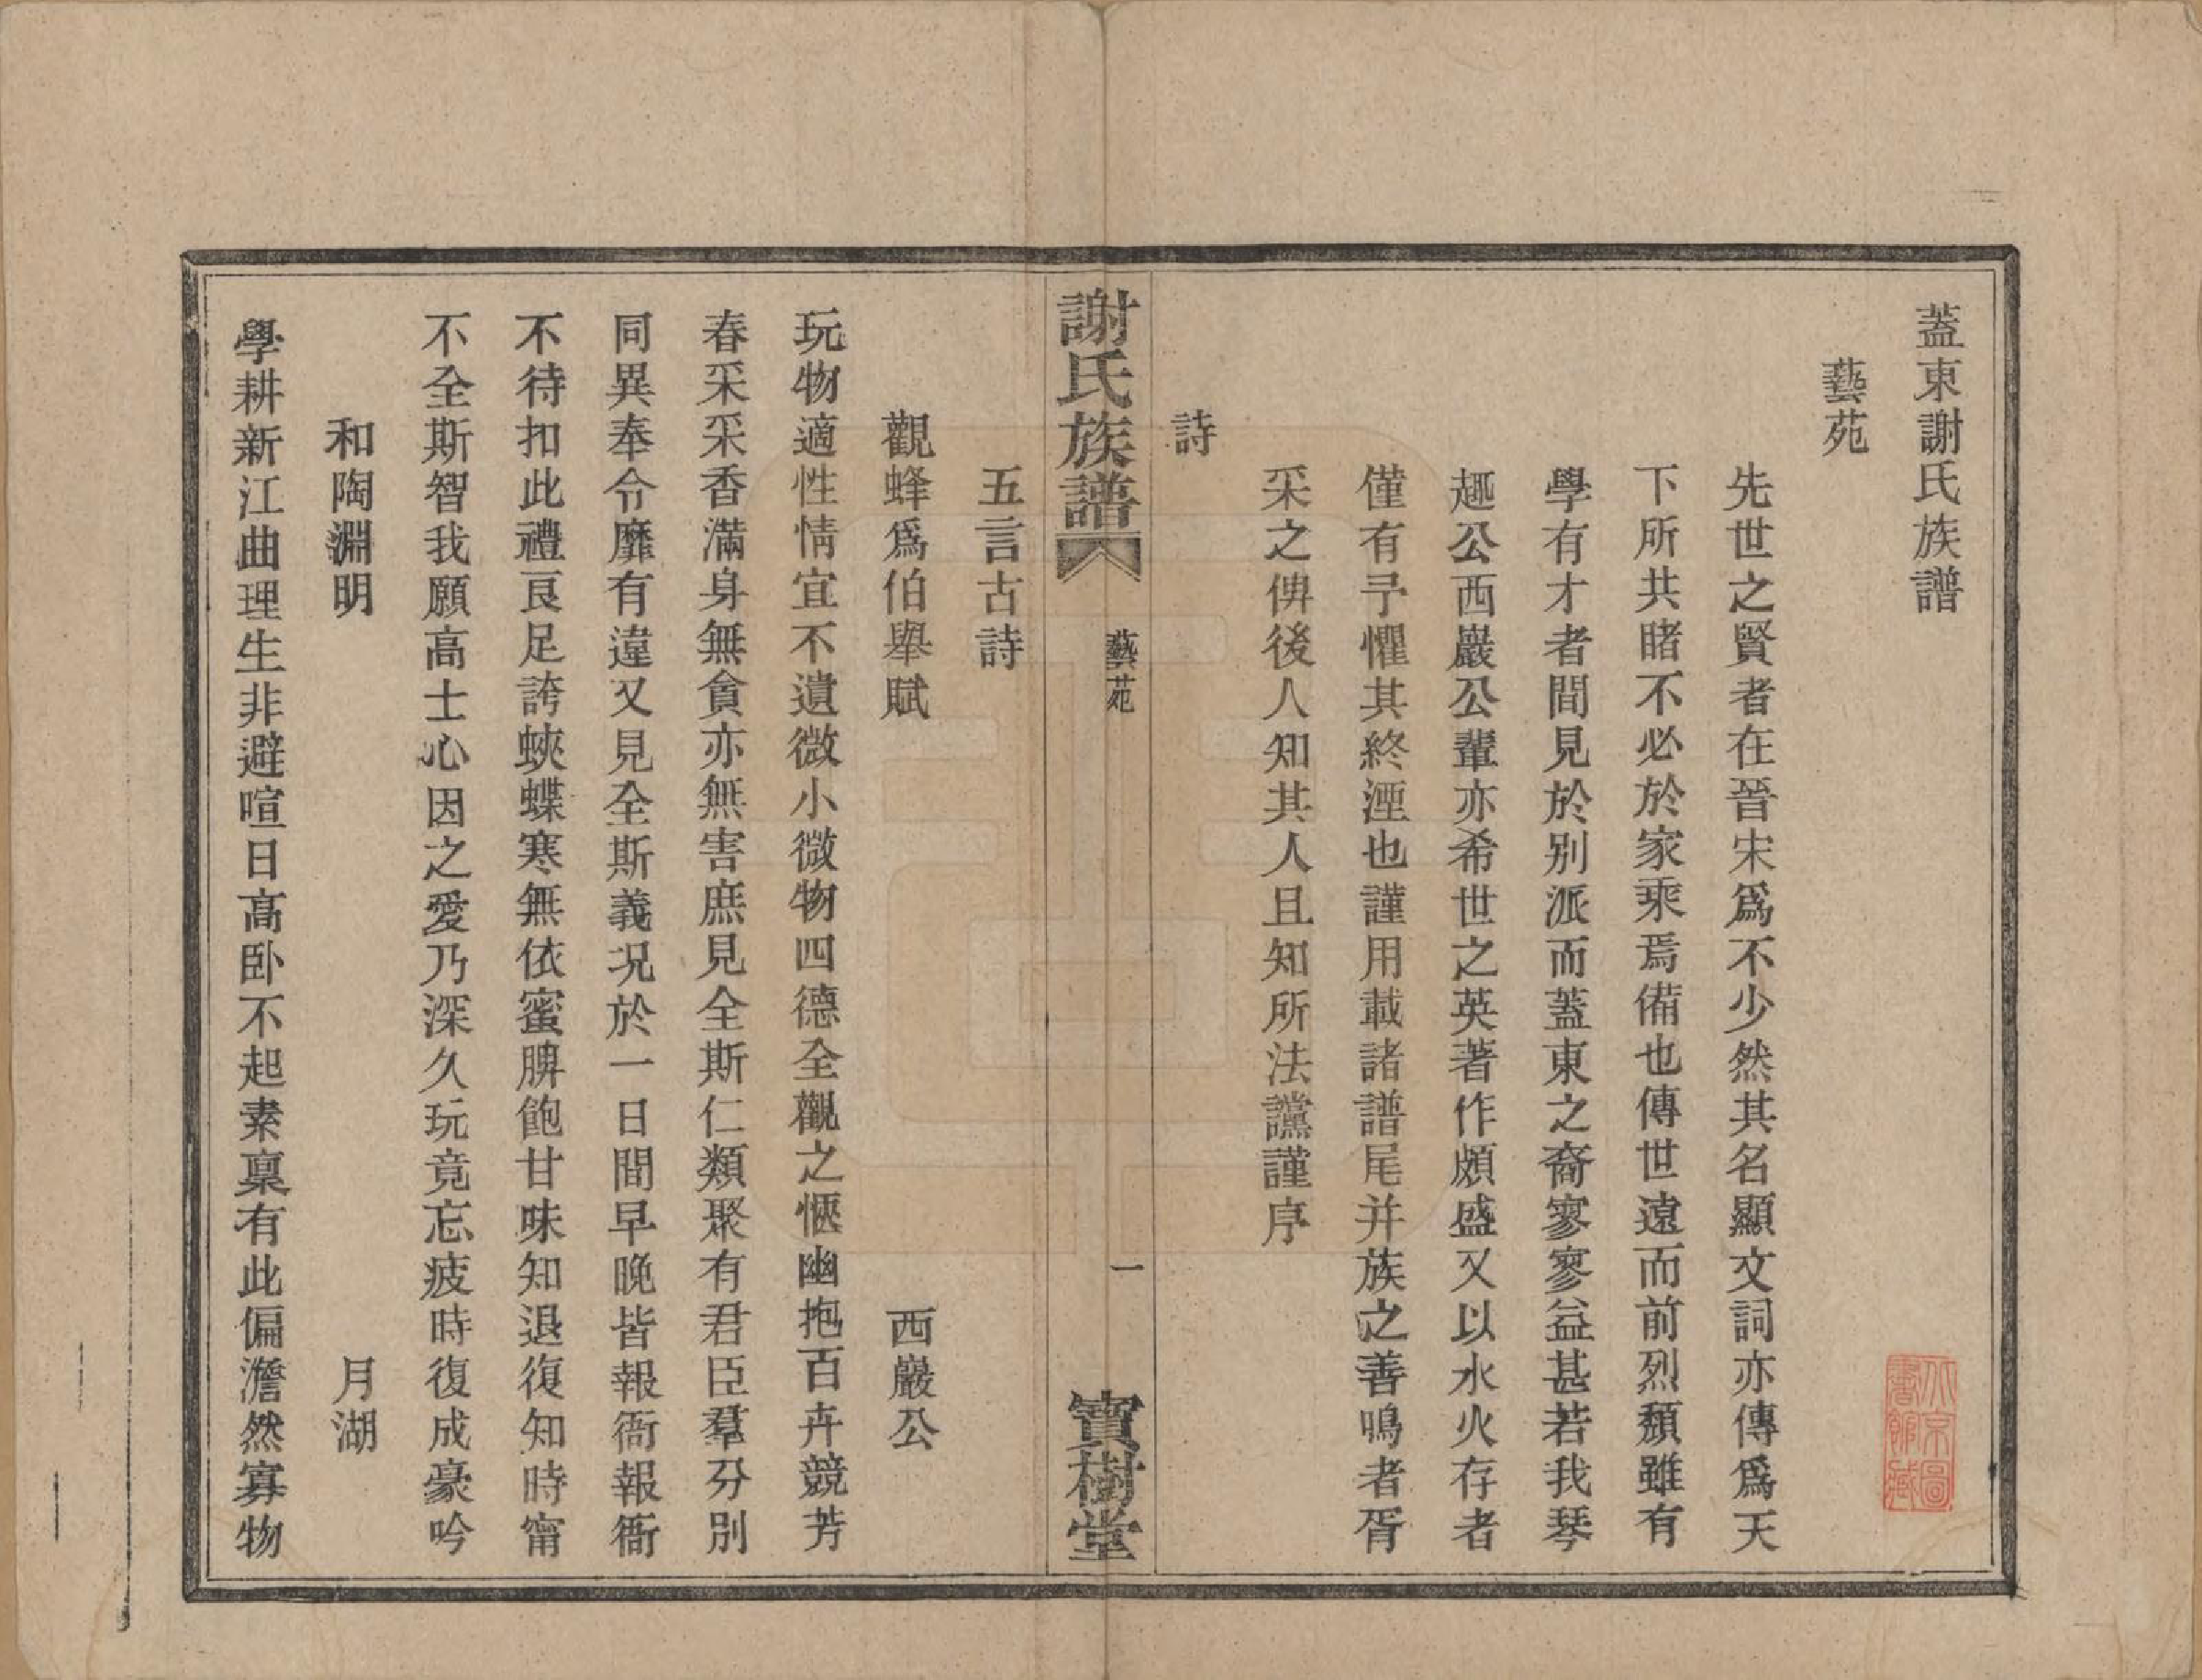 蓋東謝氏族譜
藝苑
先世之賢者在晉宋爲不少然其名顯文詞亦傳爲天
下所共睹不必於家乘焉備也傳世遠而前烈頽雖有
學有才者間見於别派而蓋東之裔寥寥益甚若我琴
趣公西巖公輩亦希世之英著作頗盛又以水火存者
僅有予懼其終湮也謹用載諸譜尾并族之善鳴者胥
采之俾後人知其人且知所法讜謹序
詩
謝氏族譜
藝苑
一
寶樹堂
五言古詩
觀蜂爲伯舉賦
西巖公
玩物適性情宜不遺微小微物四德全觀之愜幽抱百卉競芳
春采采香滿身無貪亦無害庶見全斯仁類聚有君臣羣分別
同異奉令靡有違又見全斯義况於一日間早晚皆報衙報衙
不待扣此禮良足誇蛺蝶寒無依蜜脾飽甘味知退復知時甯
不全斯智我願高士心因之愛乃深久玩竟忘疲時復成豪吟
和陶淵明
月湖
學耕新江曲理生非避喧日高卧不起素稟有此偏澹然寡物
北京圖
書館藏